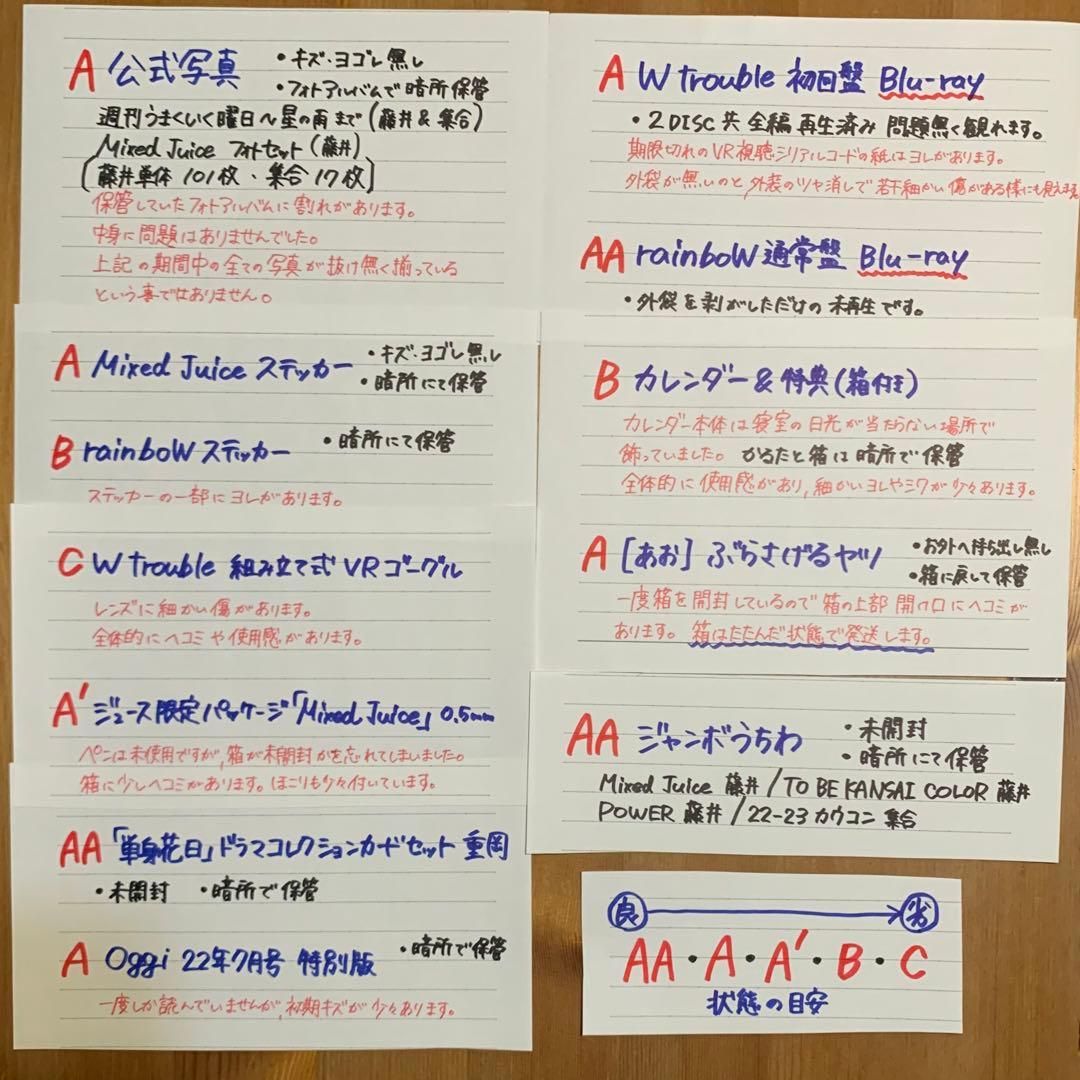 A 公式写真
・キズ・ヨゴレ無し
・フォトアルバムで暗所保管
週刊うまくいく曜日〜星の雨まで(藤井&集合)
Mixed Juice フォトセット(藤井)
[藤井単体101枚・集合17枚]
保管していたフォトアルバムに割れがあります。
中身に問題はありませんでした。
上記の期間中の全ての写真が抜け無く揃っている
という事ではありません。
A Mixed Juice ステッカー
・キズ・ヨゴレ無し
・暗所にて保管
B rainboW ステッカー
・暗所にて保管
ステッカーの一部にヨレがあります。
C W trouble 組み立て式VRゴーグル
レンズに細かい傷があります。
全体的にヘコミや使用感があります。
A' ジュース限定パッケージ「Mixed Juice」0.5mm
ペンは未使用ですが、箱が未開封かを忘れてしまいました。
箱に少しヘコミがあります。ほこりも少々付いています。
AA「単身花日」ドラマコレクションカードセット 重岡
・未開封 ・暗所で保管
A Oggi 22年7月号 特別版
・暗所で保管
一度しか読んでいませんが、初期キズが少々あります。
A W trouble 初回盤 Blu-ray
・2DISC共 全編再生済み 問題無く観れます。
期限切れのVR視聴シリアルコードの紙はヨレがあります。
外袋が無いのと、外装のツヤ消しで若干細かい傷がある様にも見えます。
AA rainboW 通常盤 Blu-ray
・外袋を剥がしただけの未再生です。
B カレンダー&特典(箱付き)
カレンダー本体は寝室の日光が当たらない場所で
飾っていました。かるたと箱は暗所で保管
全体的に使用感があり、細かいヨレやシワが少々あります。
A [あお] ぶらさげるヤツ
・お外へ持ち出し無し
・箱に戻して保管
一度箱を開封しているので箱の上部 開け口にヘコミが
あります。箱はたたんだ状態で発送します。
AA ジャンボうちわ
・未開封
・暗所にて保管
Mixed Juice 藤井/TO BE KANSAI COLOR 藤井
POWER 藤井/22-23カウコン 集合
良 劣
AA・A・A'・B・C
状態の目安